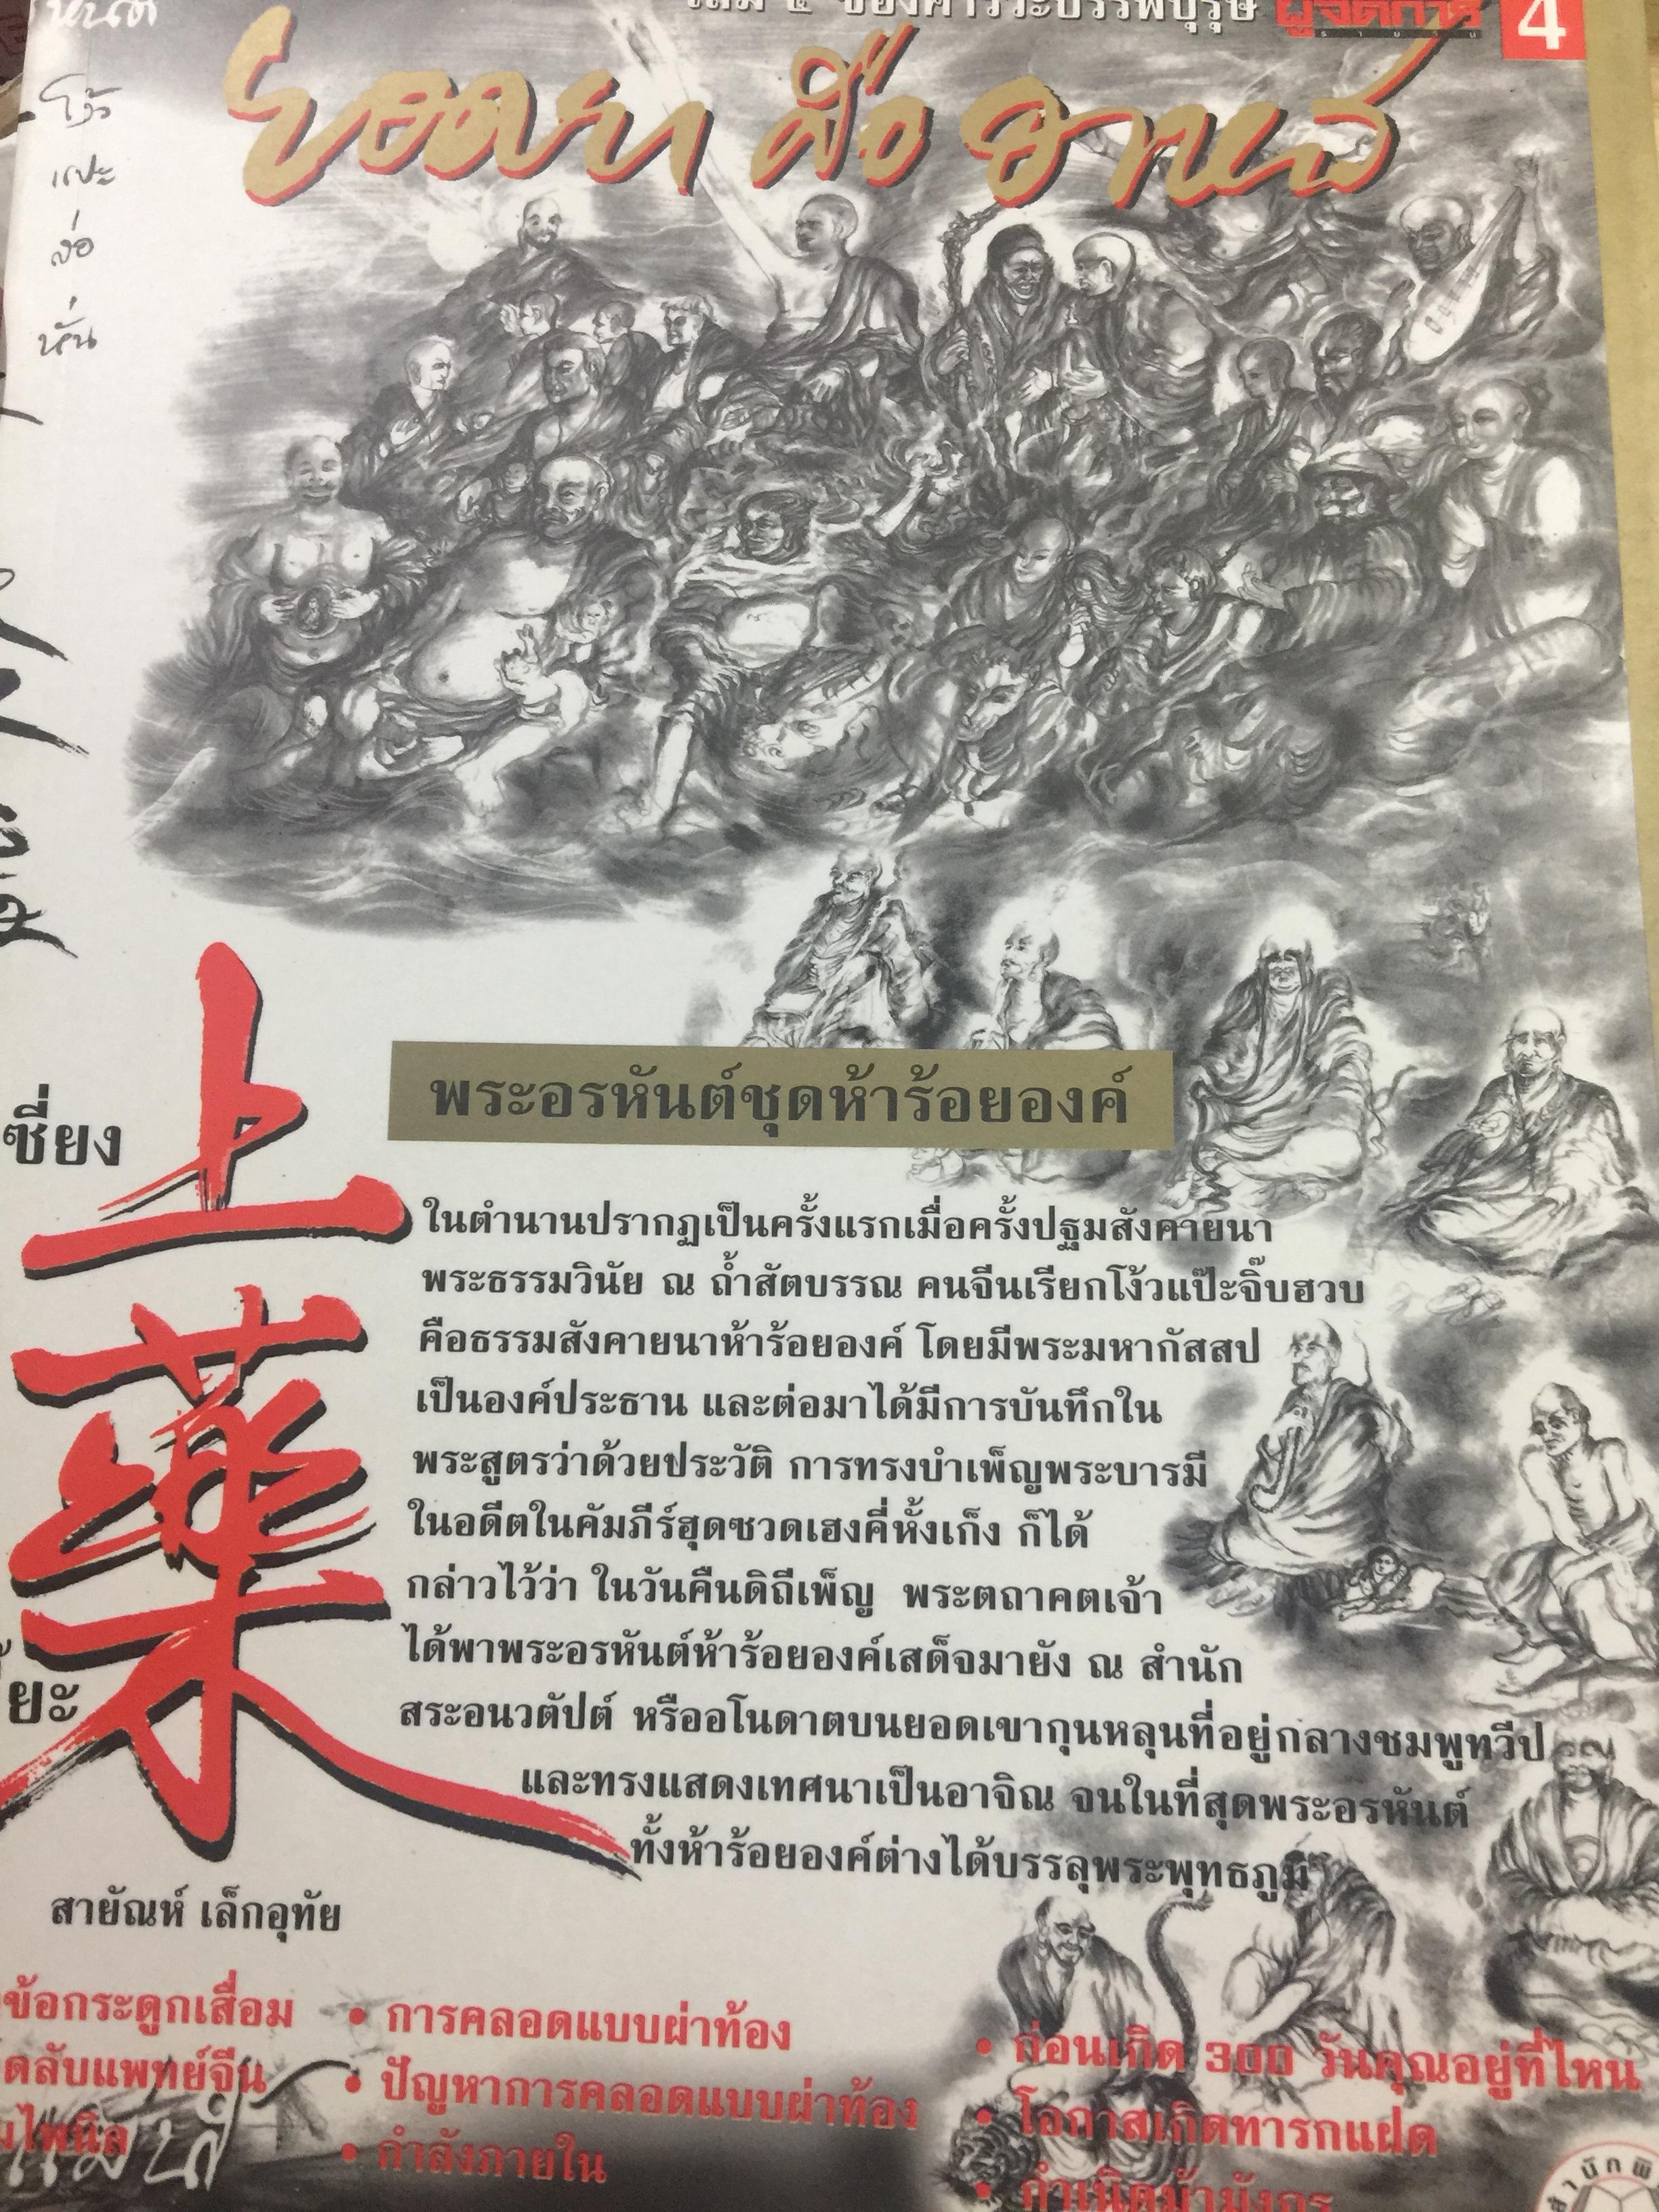 เล่ม ๔ ของคารวะบรรพบุรุษ ผู้จัดการ 4
รายวัน
ยอดยา คือ อาหาร
โง้ว
แปะ
ล่อ
หั่น
上
藥
เซี่ยง
พระอรหันต์ชุดห้าร้อยองค์
ในตำนานปรากฏเป็นครั้งแรกเมื่อครั้งปฐมสังคายนา
พระธรรมวินัย ณ ถ้ำสัตบรรณ คนจีนเรียกโง้วแป๊ะจิ๊บฮวบ
คือธรรมสังคายนาห้าร้อยองค์ โดยมีพระมหากัสสป
เป็นองค์ประธาน และต่อมาได้มีการบันทึกใน
พระสูตรว่าด้วยประวัติ การทรงบำเพ็ญพระบารมี
ในอดีตในคัมภีร์ฮุดซวดเฮงคี่หั้งเก็ง ก็ได้
กล่าวไว้ว่า ในวันคืนดิถีเพ็ญ พระตถาคตเจ้า
ได้พาพระอรหันต์ห้าร้อยองค์เสด็จมายัง ณ สำนัก
สระอนวตัปต์ หรืออโนดาตบนยอดเขากุนหลุนที่อยู่กลางชมพูทวีป
และทรงแสดงเทศนาเป็นอาจิณ จนในที่สุดพระอรหันต์
ทั้งห้าร้อยองค์ต่างได้บรรลุพระพุทธภูมิ
สายัณห์ เล็กอุทัย
ข้อกระดูกเสื่อม
แพทย์จีน
• การคลอดแบบผ่าท้อง
• ปัญหาการคลอดแบบผ่าท้อง
• กำลังภายใน
• ก่อนเกิด 300 วันคุณอยู่ที่ไหน
• โอกาสเกิดทารกแฝด
• กำเนิดม้ามังกร